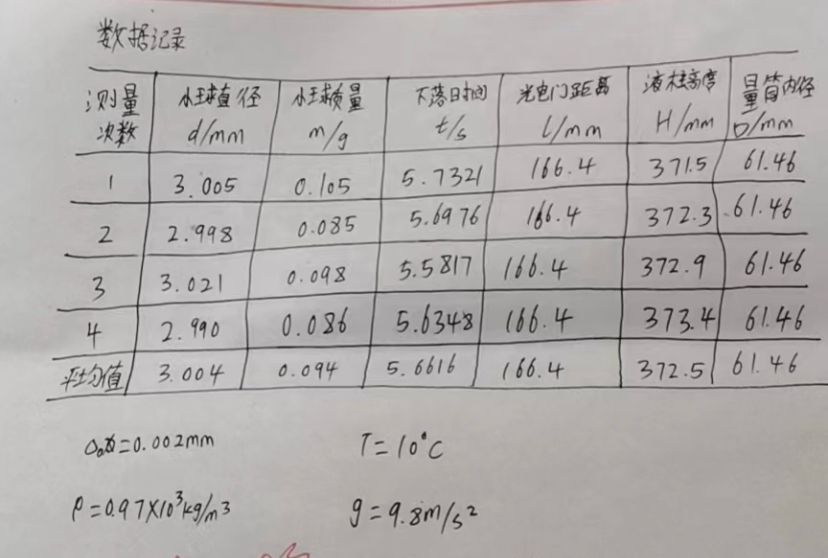 数据记录
测量次数 小球直径 d/mm 小球质量 m/g 下落时间 t/s 光电门距离 l/mm 液柱高度 H/mm 量筒内径 D/mm
1 3.005 0.105 5.7321 166.4 371.5 61.46
2 2.998 0.085 5.6976 166.4 372.3 61.46
3 3.021 0.098 5.5817 166.4 372.9 61.46
4 2.990 0.086 5.6348 166.4 373.4 61.46
平均值 3.004 0.094 5.6616 166.4 372.5 61.46
=0.002mm T=10°C
ρ=0.97×10³kg/m3 g=9.8m/s²